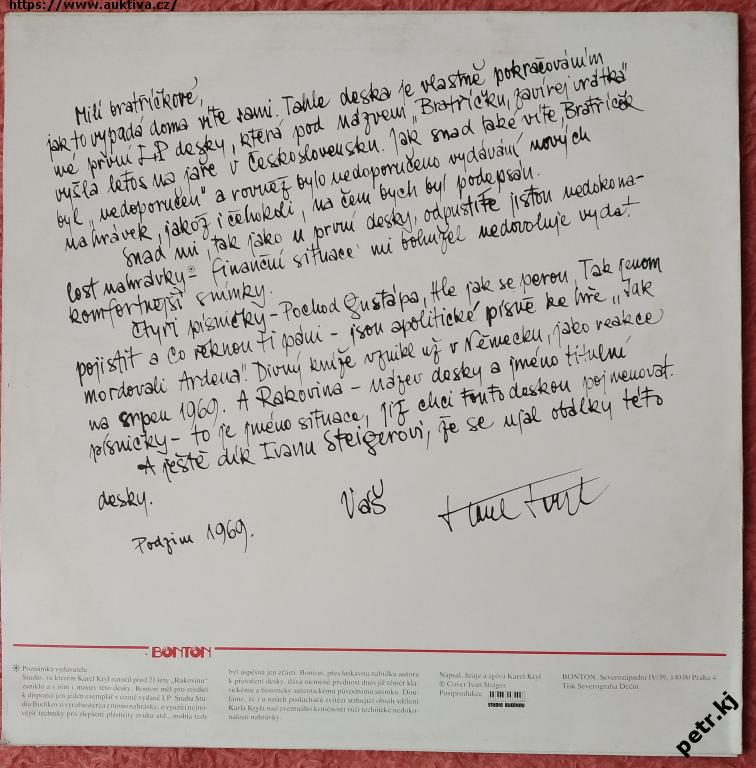 https://www.auktiva.cz/
Milí bratříčkové,
jak to vypadá doma víte sami. Tahle deska je vlastně pokračováním
mé první LP desky, která pod názvem „Bratříčku, zavírej vrátka“
vyšla letos na jaře v Československu. Jak snad také víte, Bratříček
byl „nedoporučen“ a rovněž bylo nedoporučeno vydávání nových
nahrávek, jakož i čehokoli, na čem bych byl podepsán.
Snad mi, tak jako u první desky, odpustíte jistou nedokona-
lost nahrávky* – finanční situace mi bohužel nedovoluje vydat
komfortnější snímky.
Čtyři písničky – Pochod Gustápa, Hle jak se perou, Tak jenom
pojistit a Co řeknou ti páni – jsou apolitické písně ke hře „Jak
mordovali Ardena“. Divný kníže vznikl už v Německu, jako reakce
na srpen 1969. A Rakovina – název desky a jméno titulní
písničky – to je jméno situace, jíž chci touto deskou pojmenovat.
A ještě dík Ivanu Steigerovi, že se ujal obálky této
desky.
Váš
Karel Kryl
Podzim 1969.
BONTON
* Poznámka vydavatele:
Studio, ve kterém Karel Kryl natočil před 21 lety „Rakovinu“
zaniklo a s ním i master této desky. Bonton měl pro reedici
k dispozici jen jeden exemplář v cizině vydané LP. Snaha Stu-
dia Budíkov o výrobu stereа z mono nahrávky, o využití nejno-
vější techniky pro zlepšení plasticity zvuku atd., mohla tedy
být úspěšná jen zčásti. Bonton, přes laskavou nabídku autora
k přetočení desky, dává nicméně přednost dnes již téměř kla-
sickému a historicky autentickému původnímu snímku. Dou-
fáme, že i u našich posluchačů zvítězí strhující obsah sdělení
Karla Kryla nad eventuální kritičností vůči technické nedoko-
nalosti nahrávky.
Napsal, hraje a zpívá Karel Kryl
© Cover Ivan Steiger
Postprodukce
STUDIO BUDÍKOV
BONTON, Severozápadní IV/39, 140 00 Praha 4
Tisk Severografia Děčín
petr.kj